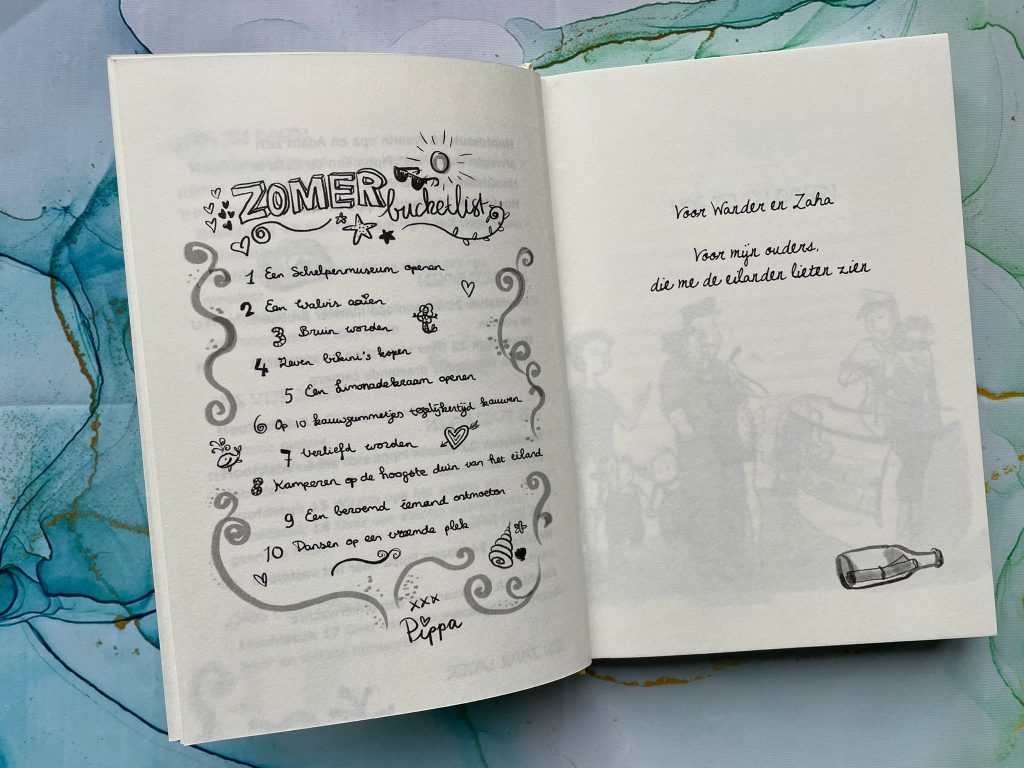 ZOMER
bucketlist
1 Een Schelpenmuseum openen
2 Een walvis aaien
3 Bruin worden
4 Zeven bikini's kopen
5 Een Limonadekraam openen
6 Op 10 kauwgummetjes tegelijkertijd kauwen
7 Verliefd worden
8 Kamperen op de hoogste duin van het eiland
9 Een beroemd iemand ontmoeten
10 Dansen op een vreemde plek
xxx
Pippa
Voor Wander en Zaha
Voor mijn ouders,
die me de eilanden lieten zien